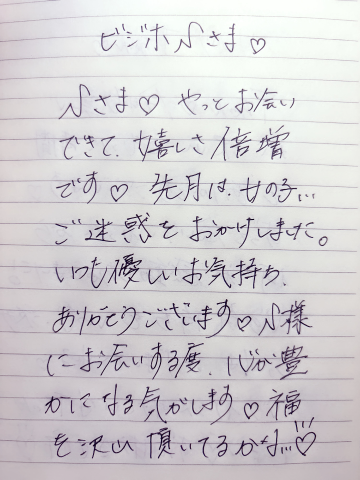 ビジホNさま♡
Nさま♡ やっとお会い
できて、嬉しさ倍増
です♡ 先月は、女の子…
ご迷惑をおかけしました。
いつも優しいお気持ち、
ありがとうございます♡N様
にお会いする度、心が豊
かになる気がします♡福
を沢山頂いてるかな…♡